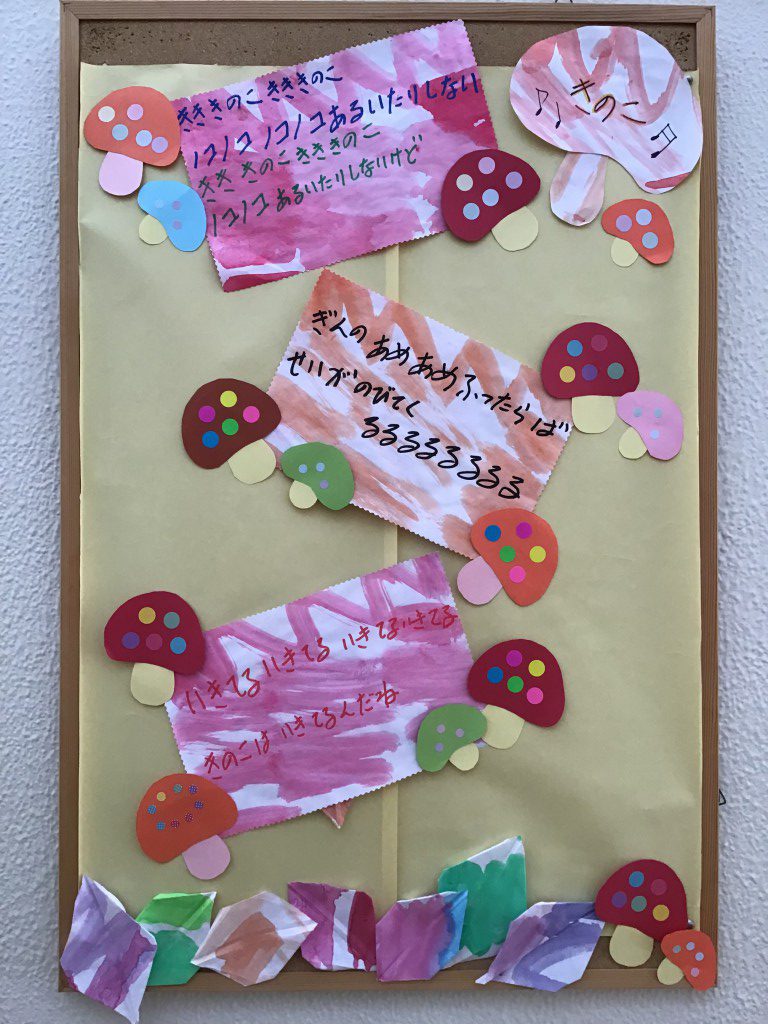 きのこ
ききのこ きききのこ
ノコノコ ノコノコ あるいたりしない
きき きのこ きききのこ
ノコノコ あるいたりしないけど
ぎんの あめ あめ ふったらば
せいが のびてく
るるるるるるるる
いきてる いきてる いきてる いきてる
きのこは いきてるんだね